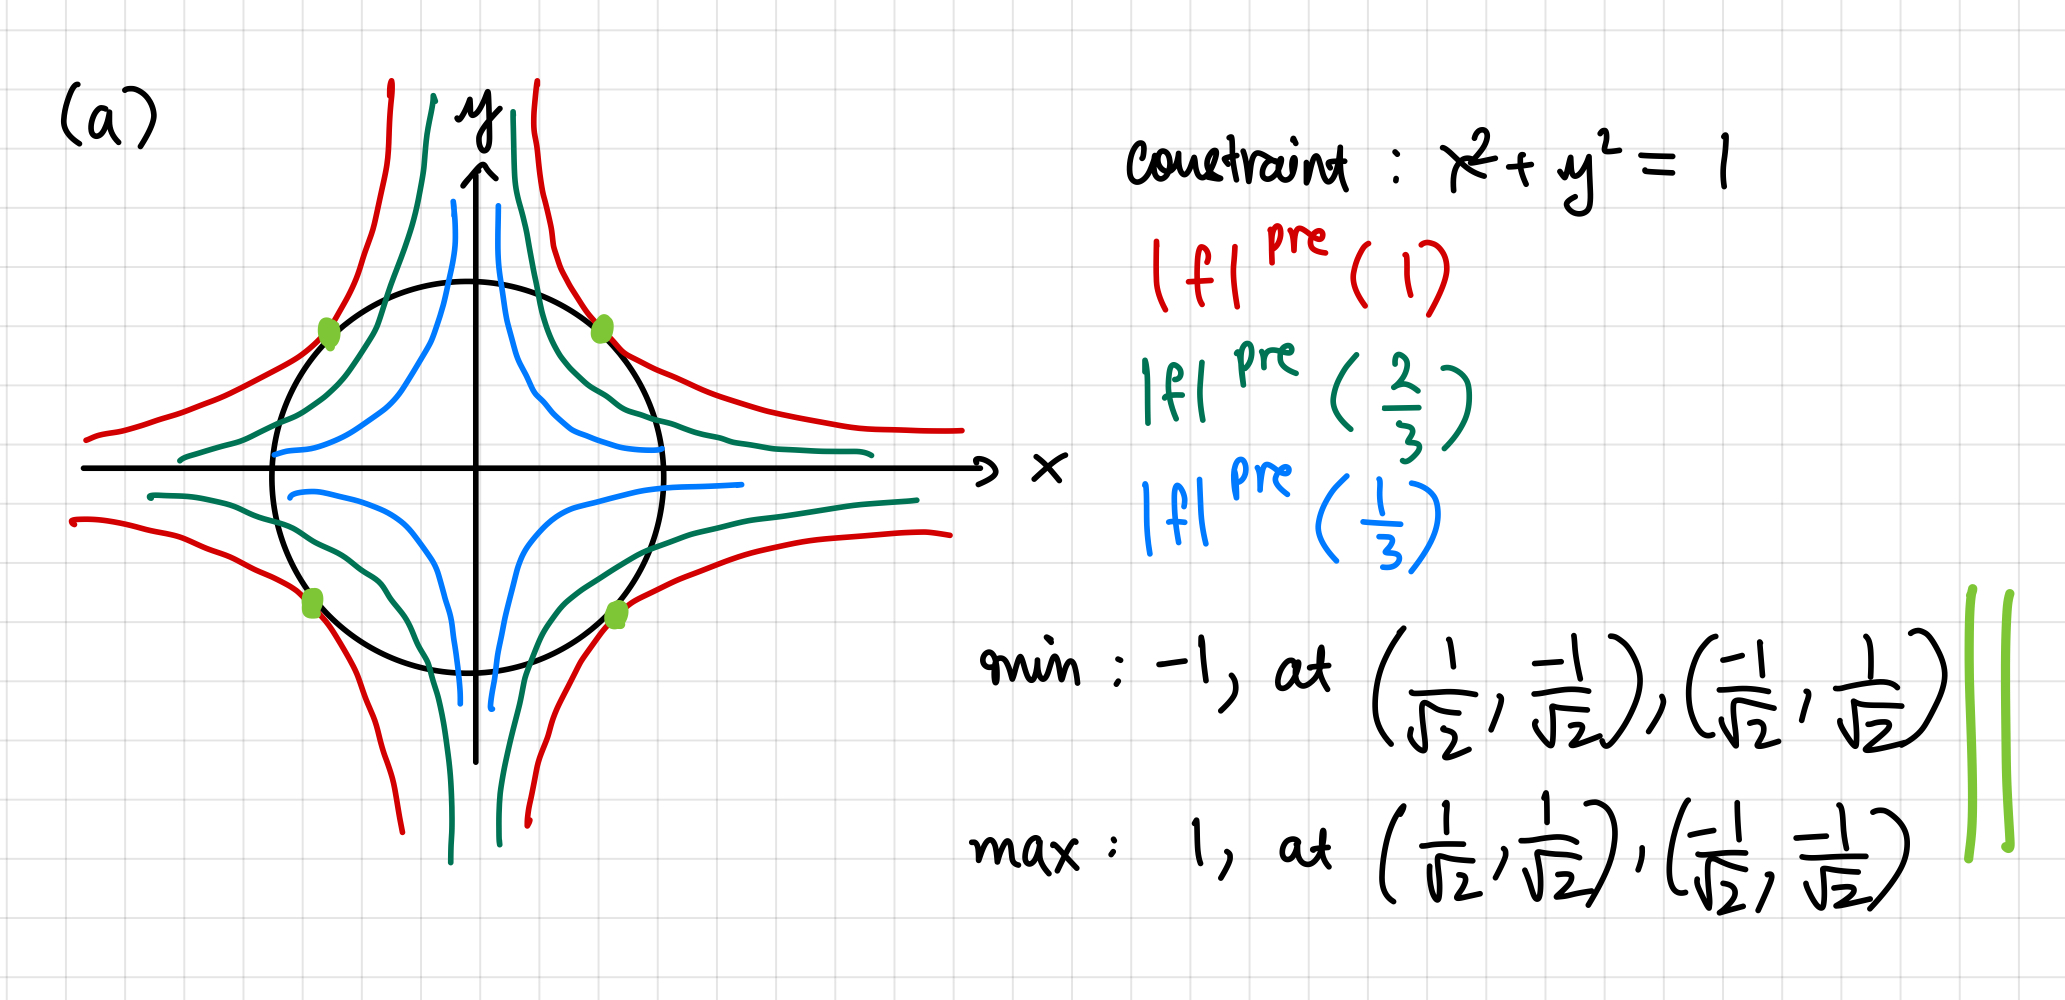 (a)
y
x
constraint : x² + y² = 1
|f|^pre (1)
|f|^pre (2/3)
|f|^pre (1/3)
min : -1, at (1/√2, -1/√2), (-1/√2, 1/√2)
max : 1, at (1/√2, 1/√2), (-1/√2, -1/√2)